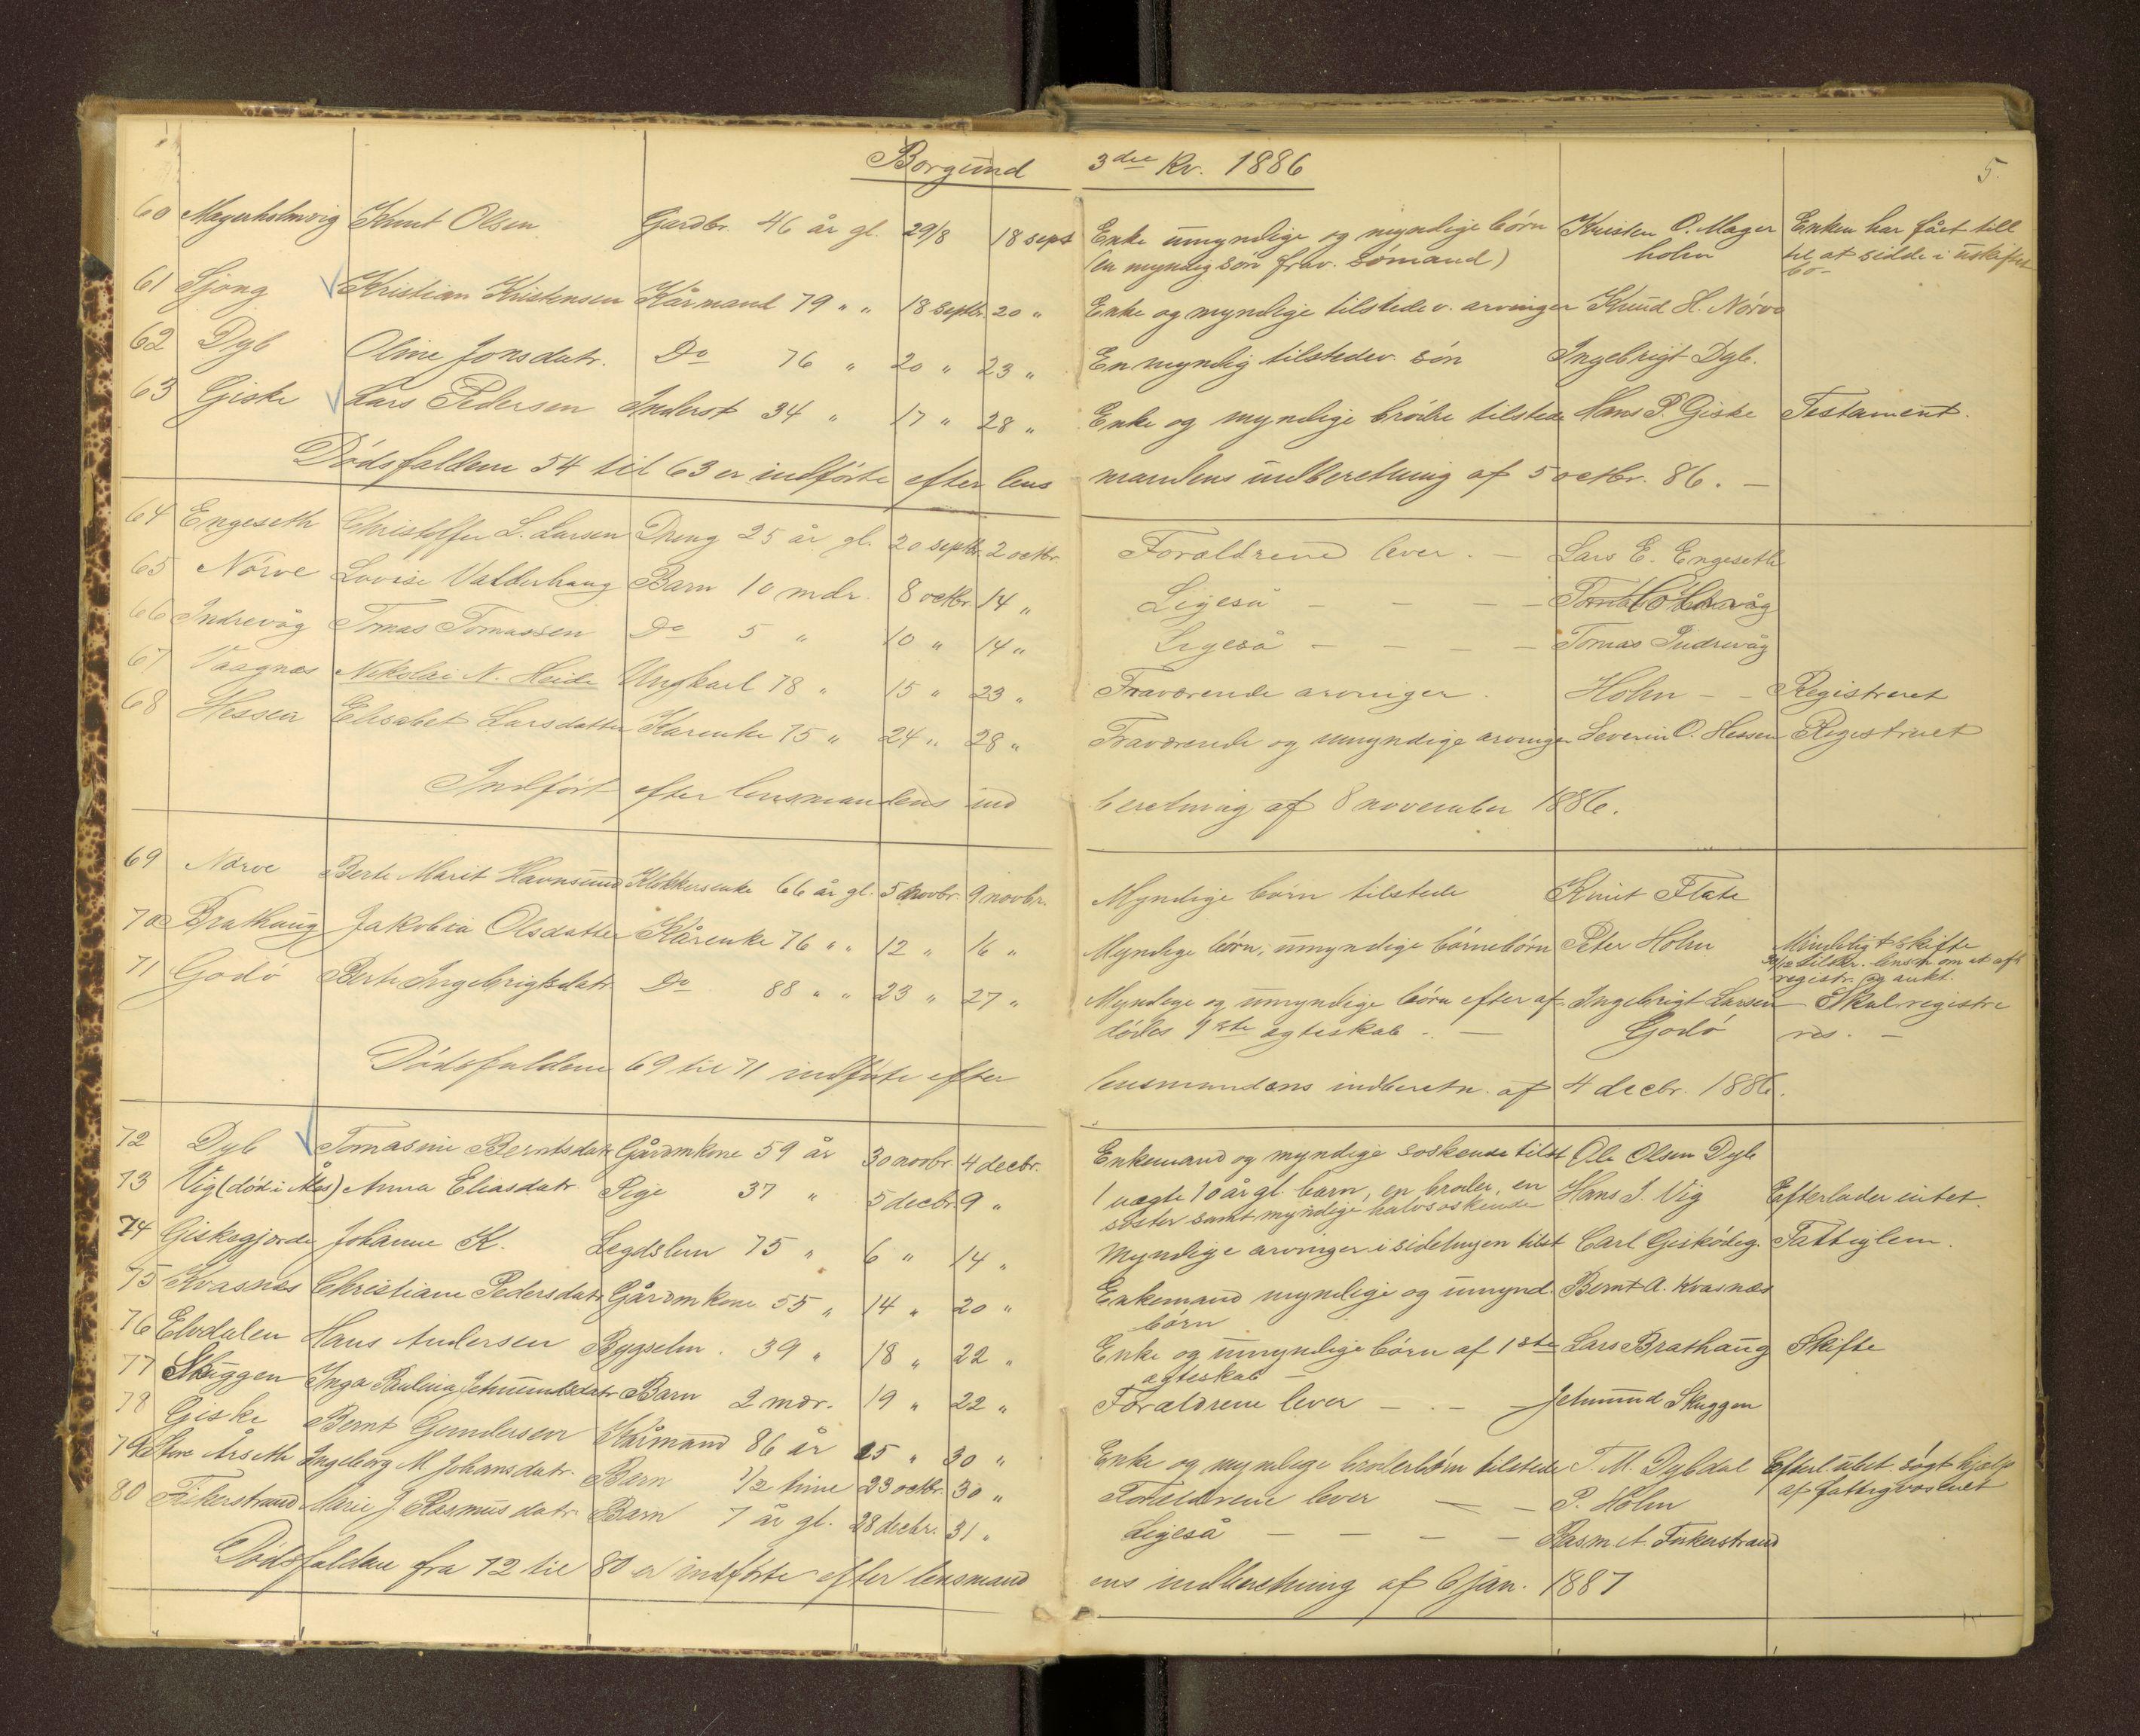 Borgund 3die Kv. 1886 5.
60 Magerholmvig Knut Olsen Gardbr. 46 år gl. 29/8 18 sept Enke umyndige og myndige börn Kristen O. Mager Enken har fået till
(en myndig sön frav. sömand) holm til at sidde i uskiftet
bo-
61 Sjong Kristian Kristensen Kårmand 79 " " 18 septbr. 20 " Enke og myndige tilstedev. arvinger Knud H. Nörve
62 Dyb Oline Jonsdatr. Do 76 " 20 " 23 " En myndig tilstedev. sön Ingebrigt Dyb.
63 Giske Lars Pedersen Inderst 34 " 17 " 28 " Enke og myndige brödre tilstede Hans P. Giske Testament.
Dödsfaldene 54 til 63 er indförte efter lens mandens indberetning af 5 octbr. 86. —
64 Engeseth Christoffer L. Larsen Dreng 25 år gl. 20 septbr. 2 octbr. Forældrene lever. — Lars E. Engeseth
65 Nörve Lovise Valderhaug Barn 10 mdr. 8 octbr. 14 " Ligeså — — — —
66 Indrevåg Tomas Tomassen Do 5 " 10 " 14 " Ligeså — — — — Tomas Indrevåg
67 Vaagnæs Nikolai N. Heide Ungkarl 78 " 15 " 23 " Fraværende arvinger. Holm — — Registreret
68 Hessen Elisabet Larsdatter Kårenke 75 " 24 " 28 " Fraværende og umyndige arvinger Severin O. Hessen Registreret
Indfört efter lensmandens ind beretning af 8 november 1886.
69 Nörve Berte Marit Havnsund Klokkerenke 66 år gl. 5 novbr. 9 novbr. Myndige börn tilstede Knut Flate
70 Brathaug Jakobia Olsdatter Kårenke 76 " " 12 " 16 " Myndige börn, umyndige börnebörn Peter Holm Mindeligt skifte
30/12 tilskr. lensm om at afh
registr. og aukt.
71 Godö Berte Ingebrigtsdatr Do 88 " " 23 " 27 " Myndige og umyndige börn efter af Ingebrigt Larsen Skal registre
dödes 1ste ægteskab. — Godö res. —
Dödsfaldene 69 til 71 indförte efter lensmandens indberetn. af 4 decbr. 1886.
72 Dyb Tomasine Berntsdatr Gårdmkone 59 år 30 novbr. 4 decbr. Enkemand og myndige söskende tilst Ole Olsen Dyb
73 Vig (död i Åles) Anna Eliasdatr. Pige 37 " 5 decbr. 9 " 1 uægte 10 år gl. barn, en broder, en Hans J. Vig Efterlader intet.
söster samt myndige halvsöskende
74 Giskegjerde Johanne K. Legdslem 75 " 6 " 14 " Myndige arvinger i sidelinjen tilst Carl Gisködeg. Fattiglem.
75 Kvasnæs Christiane Pedersdatr Gårdmkone 55 " 14 " 20 " Enkemand myndige og umynd. Bernt A. Kvasnæs
börn
76 Elvdalen Hans Andersen Bygselm. 39 " 18 " 22 " Enke og umyndige börn af 1ste Lars Brathaug Skifte
ægteskab —
77 Skuggen Inga Paulina Jetmundsdatr Barn 2 mdr. 19 " 22 " Forældrene lever — . — Jetmund Skuggen
78 Giske Bernt Gundersen Kårmand 86 år 25 " 30 " Enke og myndige broderbörn tilstede T. M. Dybdal Efterl. intet. sögt hjælp
af fattigvæsenet
79 Store Årseth Ingeborg M. Johansdatr. Barn 1/2 time 23 octbr. 30 " Forældrene lever — — P. Holm
80 Fiskerstrand Marie J. Rasmusdatr. Barn 7 år gl. 28 decbr. 31 " Ligeså — — — — Rasm. A. Fiskerstrand
Dödsfaldene fra 72 til 80 er indförte efter lensmand ens indberetning af 6 jan. 1887